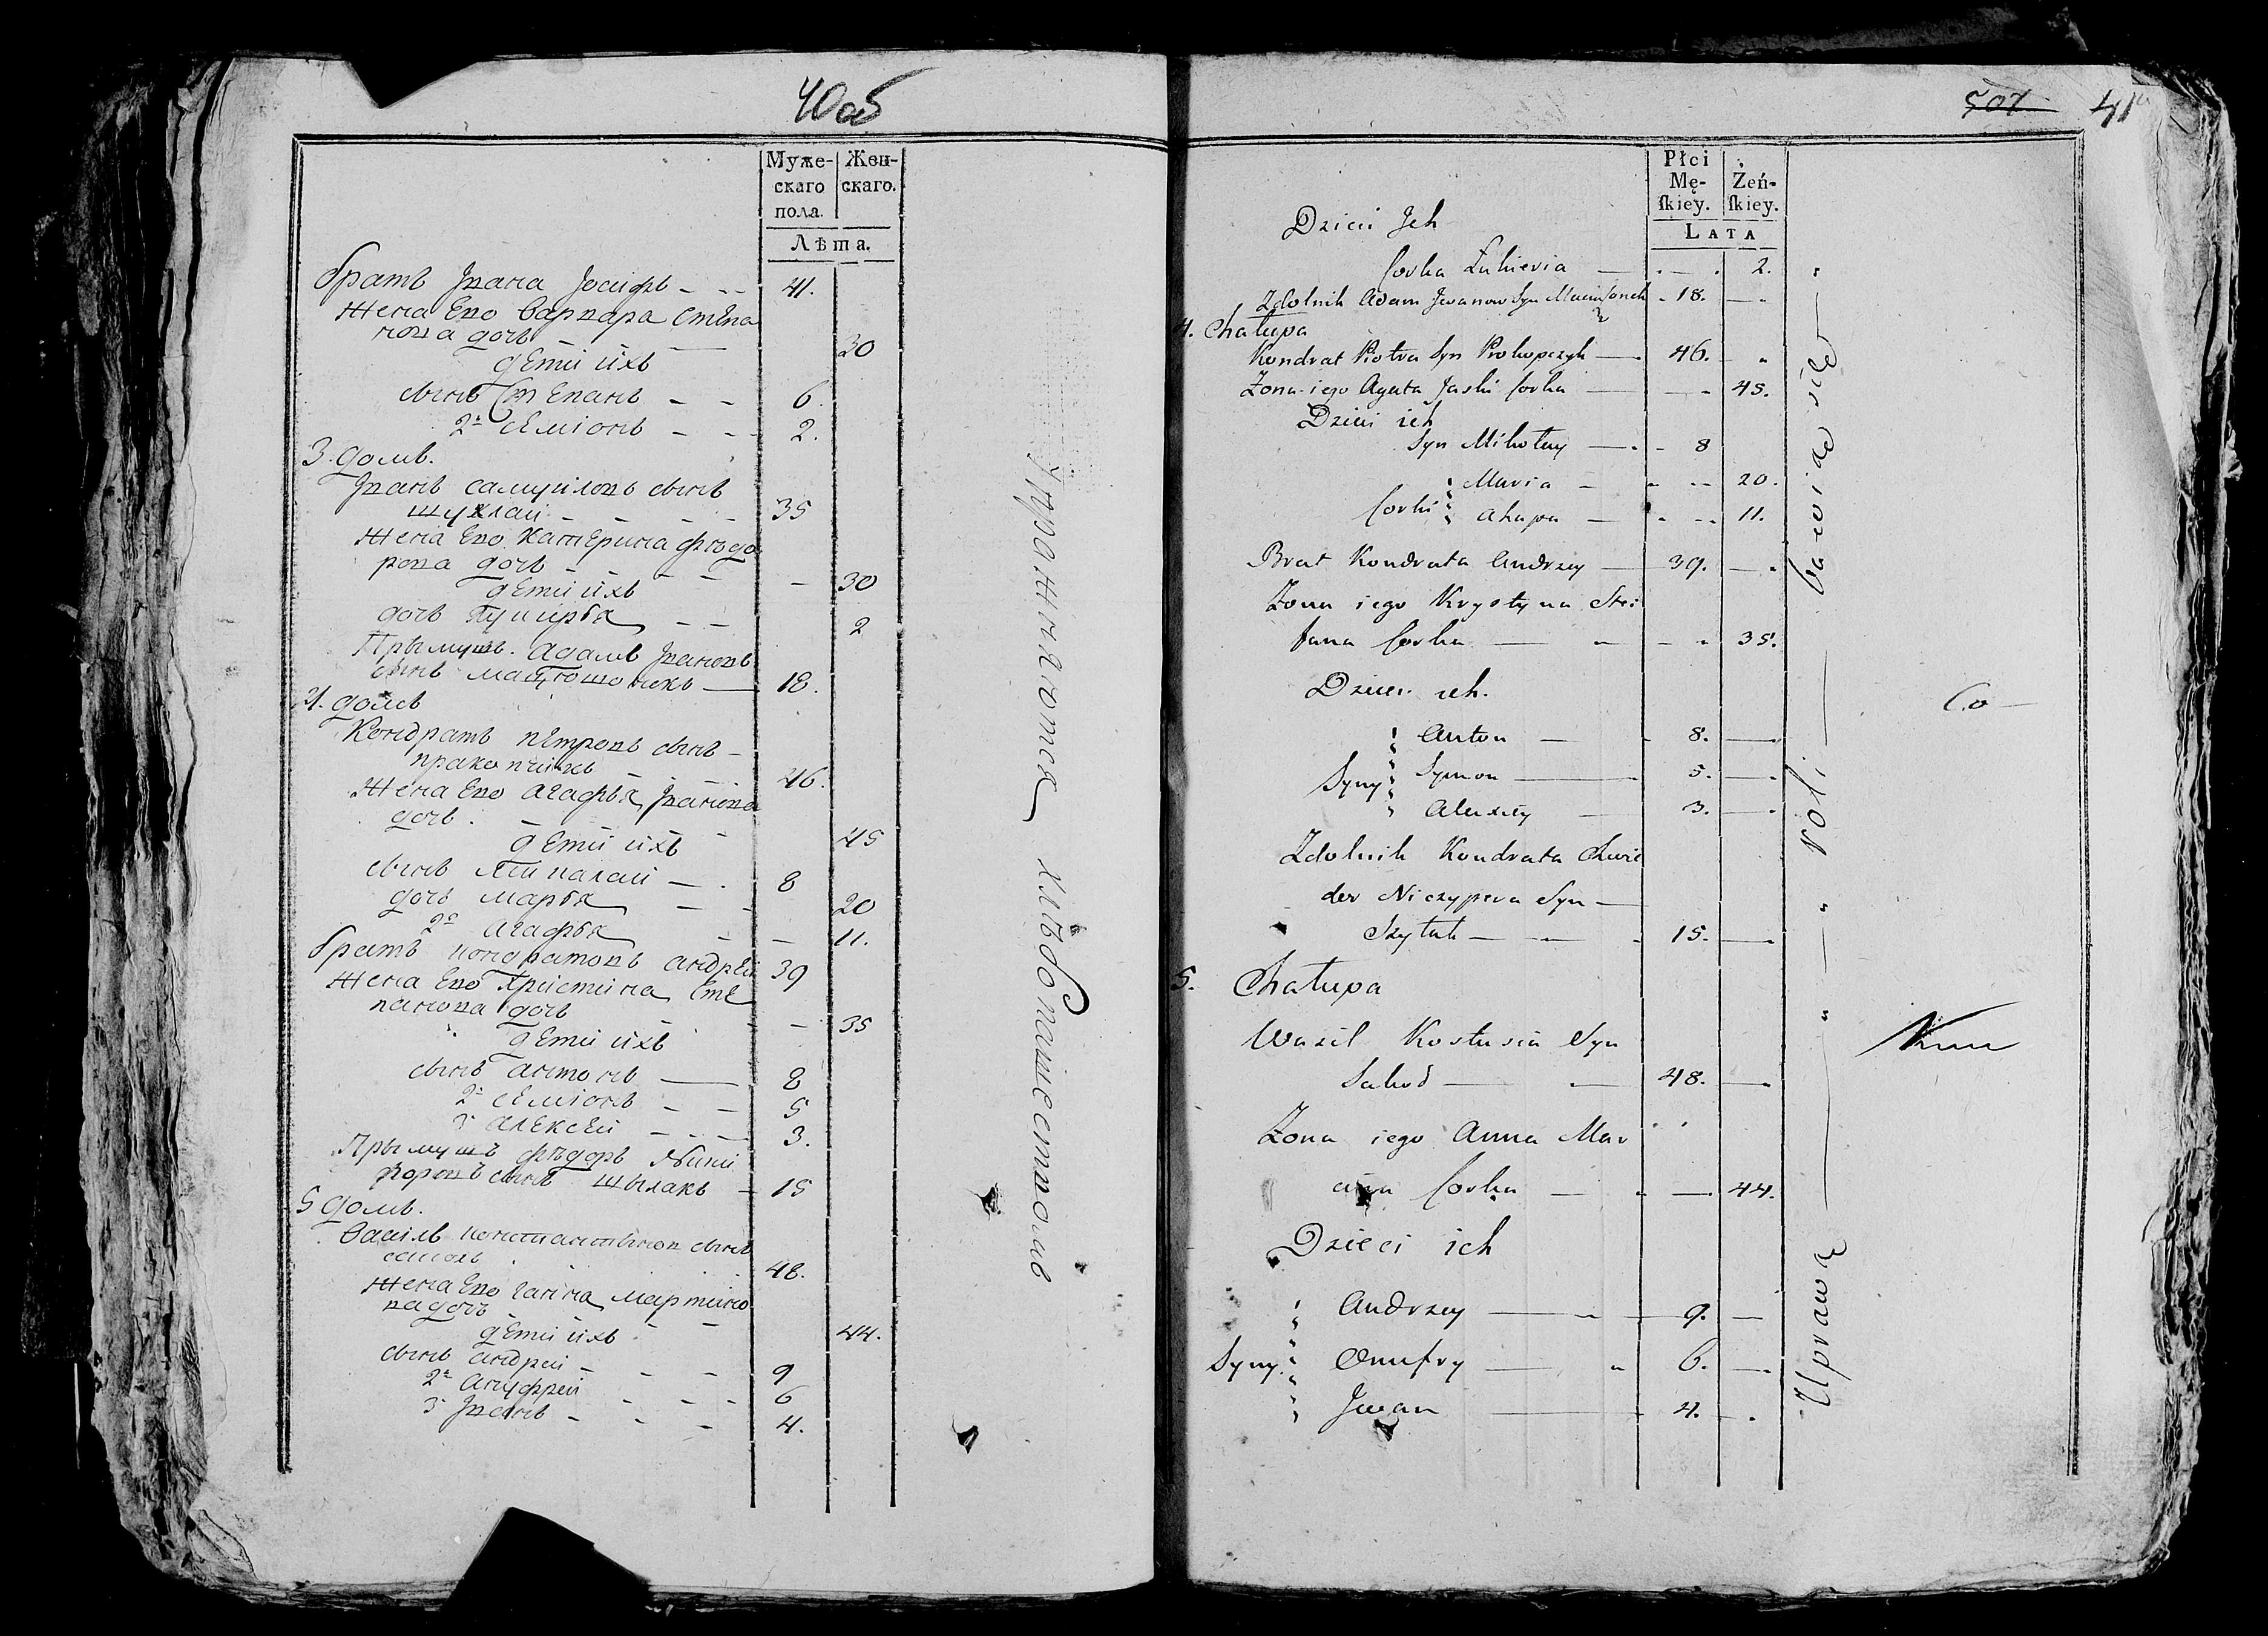 40об
Муже-
скаго
пола.
Жен-
скаго.
Лѣта.
братъ Ивана Іосифъ - - - 41.
Жена Ево Варвара Степа
нова дочь - - 30
дети ихъ
сынъ Степанъ - - 6.
2й семіонъ - - - 2.
3. домъ.
Иванъ самуиловъ сынъ
шуклай - - - - 35
Жена Ево Катерина фѣдо
рова дочь - - - - 30
дети ихъ
дочь - - 2
Прымушъ. адамъ Ивановъ
сынъ мацюшонокъ — 18.
4. домъ
Кондратъ петровъ сынъ -
пракопчикъ - - 46.
Жена Ево агафья Иванова
дочь. - - - - 45
дети ихъ
сынъ Миколай - . 8
дочь марья - - 20
2я агафья - - 11.
братъ кондратовъ андрей 39
Жена Ево Христина Сте
панова дочь - - - 35
дети ихъ
сынъ антонъ — 8
2й семіонъ - - 5
3й алексей - - - 3.
Прымушъ фѣдоръ Ничи
поровъ сынъ шылакъ - 15
5 домъ.
Васіль константинов сынъ
48.
Жена Ево ганна мартино
ва дочь - - - 44.
дети ихъ
сынъ андрей - - - 9
2й ануфрей - - - - 6
3й Иванъ - - - - 4.
Упражняются хлѣбопашествомъ
507 41
Płci
Mę-
ſkiey.
Żeń-
ſkiey.
LATA
Dzieci Jch
Corka — . — . 2.
Zdolnik Adam Jwanow Syn Maciuszonek - 18. —
4. Chałupa
Kondrat Piotra Syn Prokopczyk — 46. -
Żona iego Agata Jaśki Corka — — - 45.
Dzieci ich
Syn Mikołay — - 8
Maria — - -- 20.
Corki
Ahapa — - -- 11.
Brat Kondrata Andrzey — 39. — .
Żona iego Krystyna Ste
fana Corka — - - - 35.
Dzieci ich.
Anton — - 8. —
Syny Symon — 5. —
Alexiey — 3. —
Zdolnik Kondrata Chwie
der Niczypora Syn —
Szytak — - 15. —
5. Chałupa
Wasil Kostusia Syn
— — 48. —
Żona iego Anna Mar
cina Corka — - — 44.
Dzieci ich
Andrzey — - 9. —
Syny. Onufry — " 6. —
Jwan — 4. - .
Uprawą — " — " roli — bawiąc się —
Co —